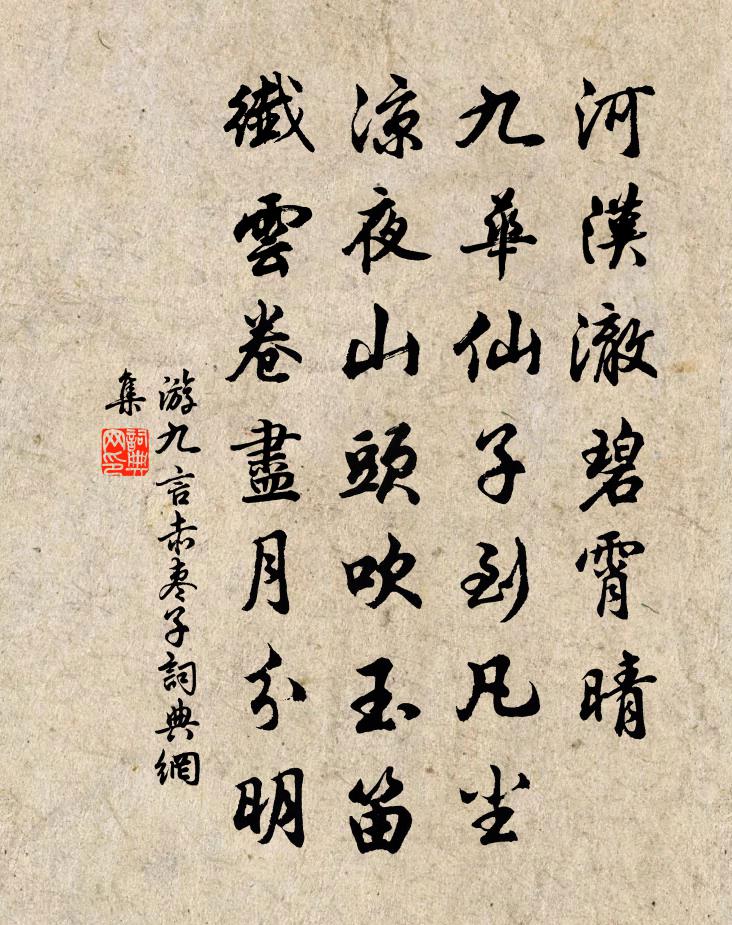 河漢澈碧霄晴
九華仙子到凡尘
涼夜山頭吹玉笛
纖雲卷盡月分明
游九言赤枣子詞典網
集
詞典网印